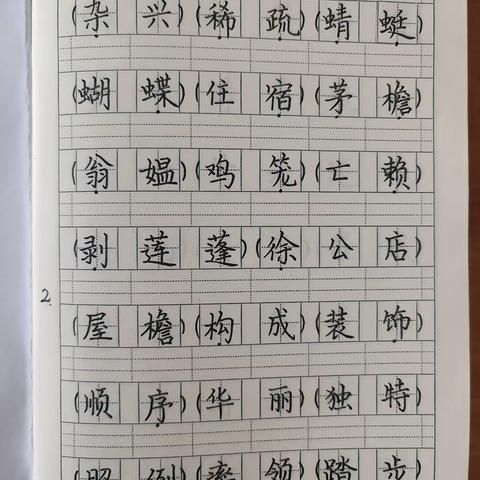 (杂兴)(稀疏)(蜻蜓)
(蝴蝶)(住宿)(茅檐)
(翁媪)(鸡笼)(亡赖)
(剥莲蓬)(徐公店)
2.
(屋檐)(构成)(装饰)
(顺序)(华丽)(独特)
(照例)(率领)(踏步)